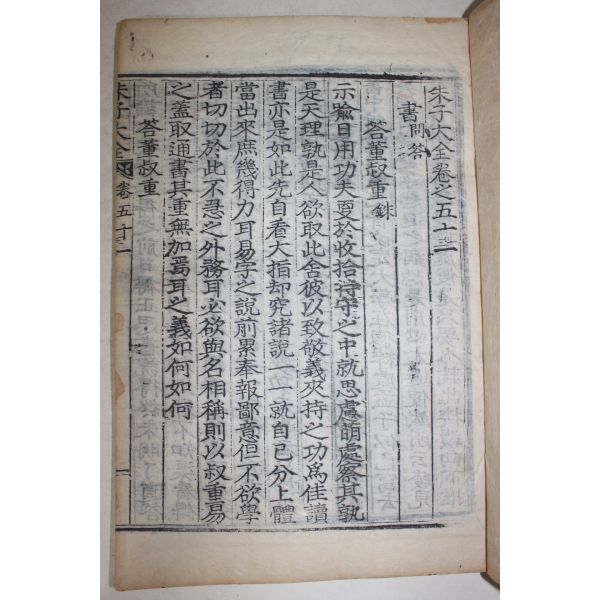 朱子大全卷之五十一
書 問答
答董叔重 銖
示喩日用功夫更於收拾持守之中就思慮萌處察其孰
是天理孰是人欲取此舍彼以致敬義夾持之功爲佳讀
書亦是如此先自看大指却究諸說一一就自己分上體
當出來庶幾得力耳易字之說前累奉報鄙意但不欲學
者切切於此不急之外務耳必欲與名相稱則以叔重易
之盖取通書其重無加焉耳之義如何如何
答董叔重
朱子大全 卷五十一 一